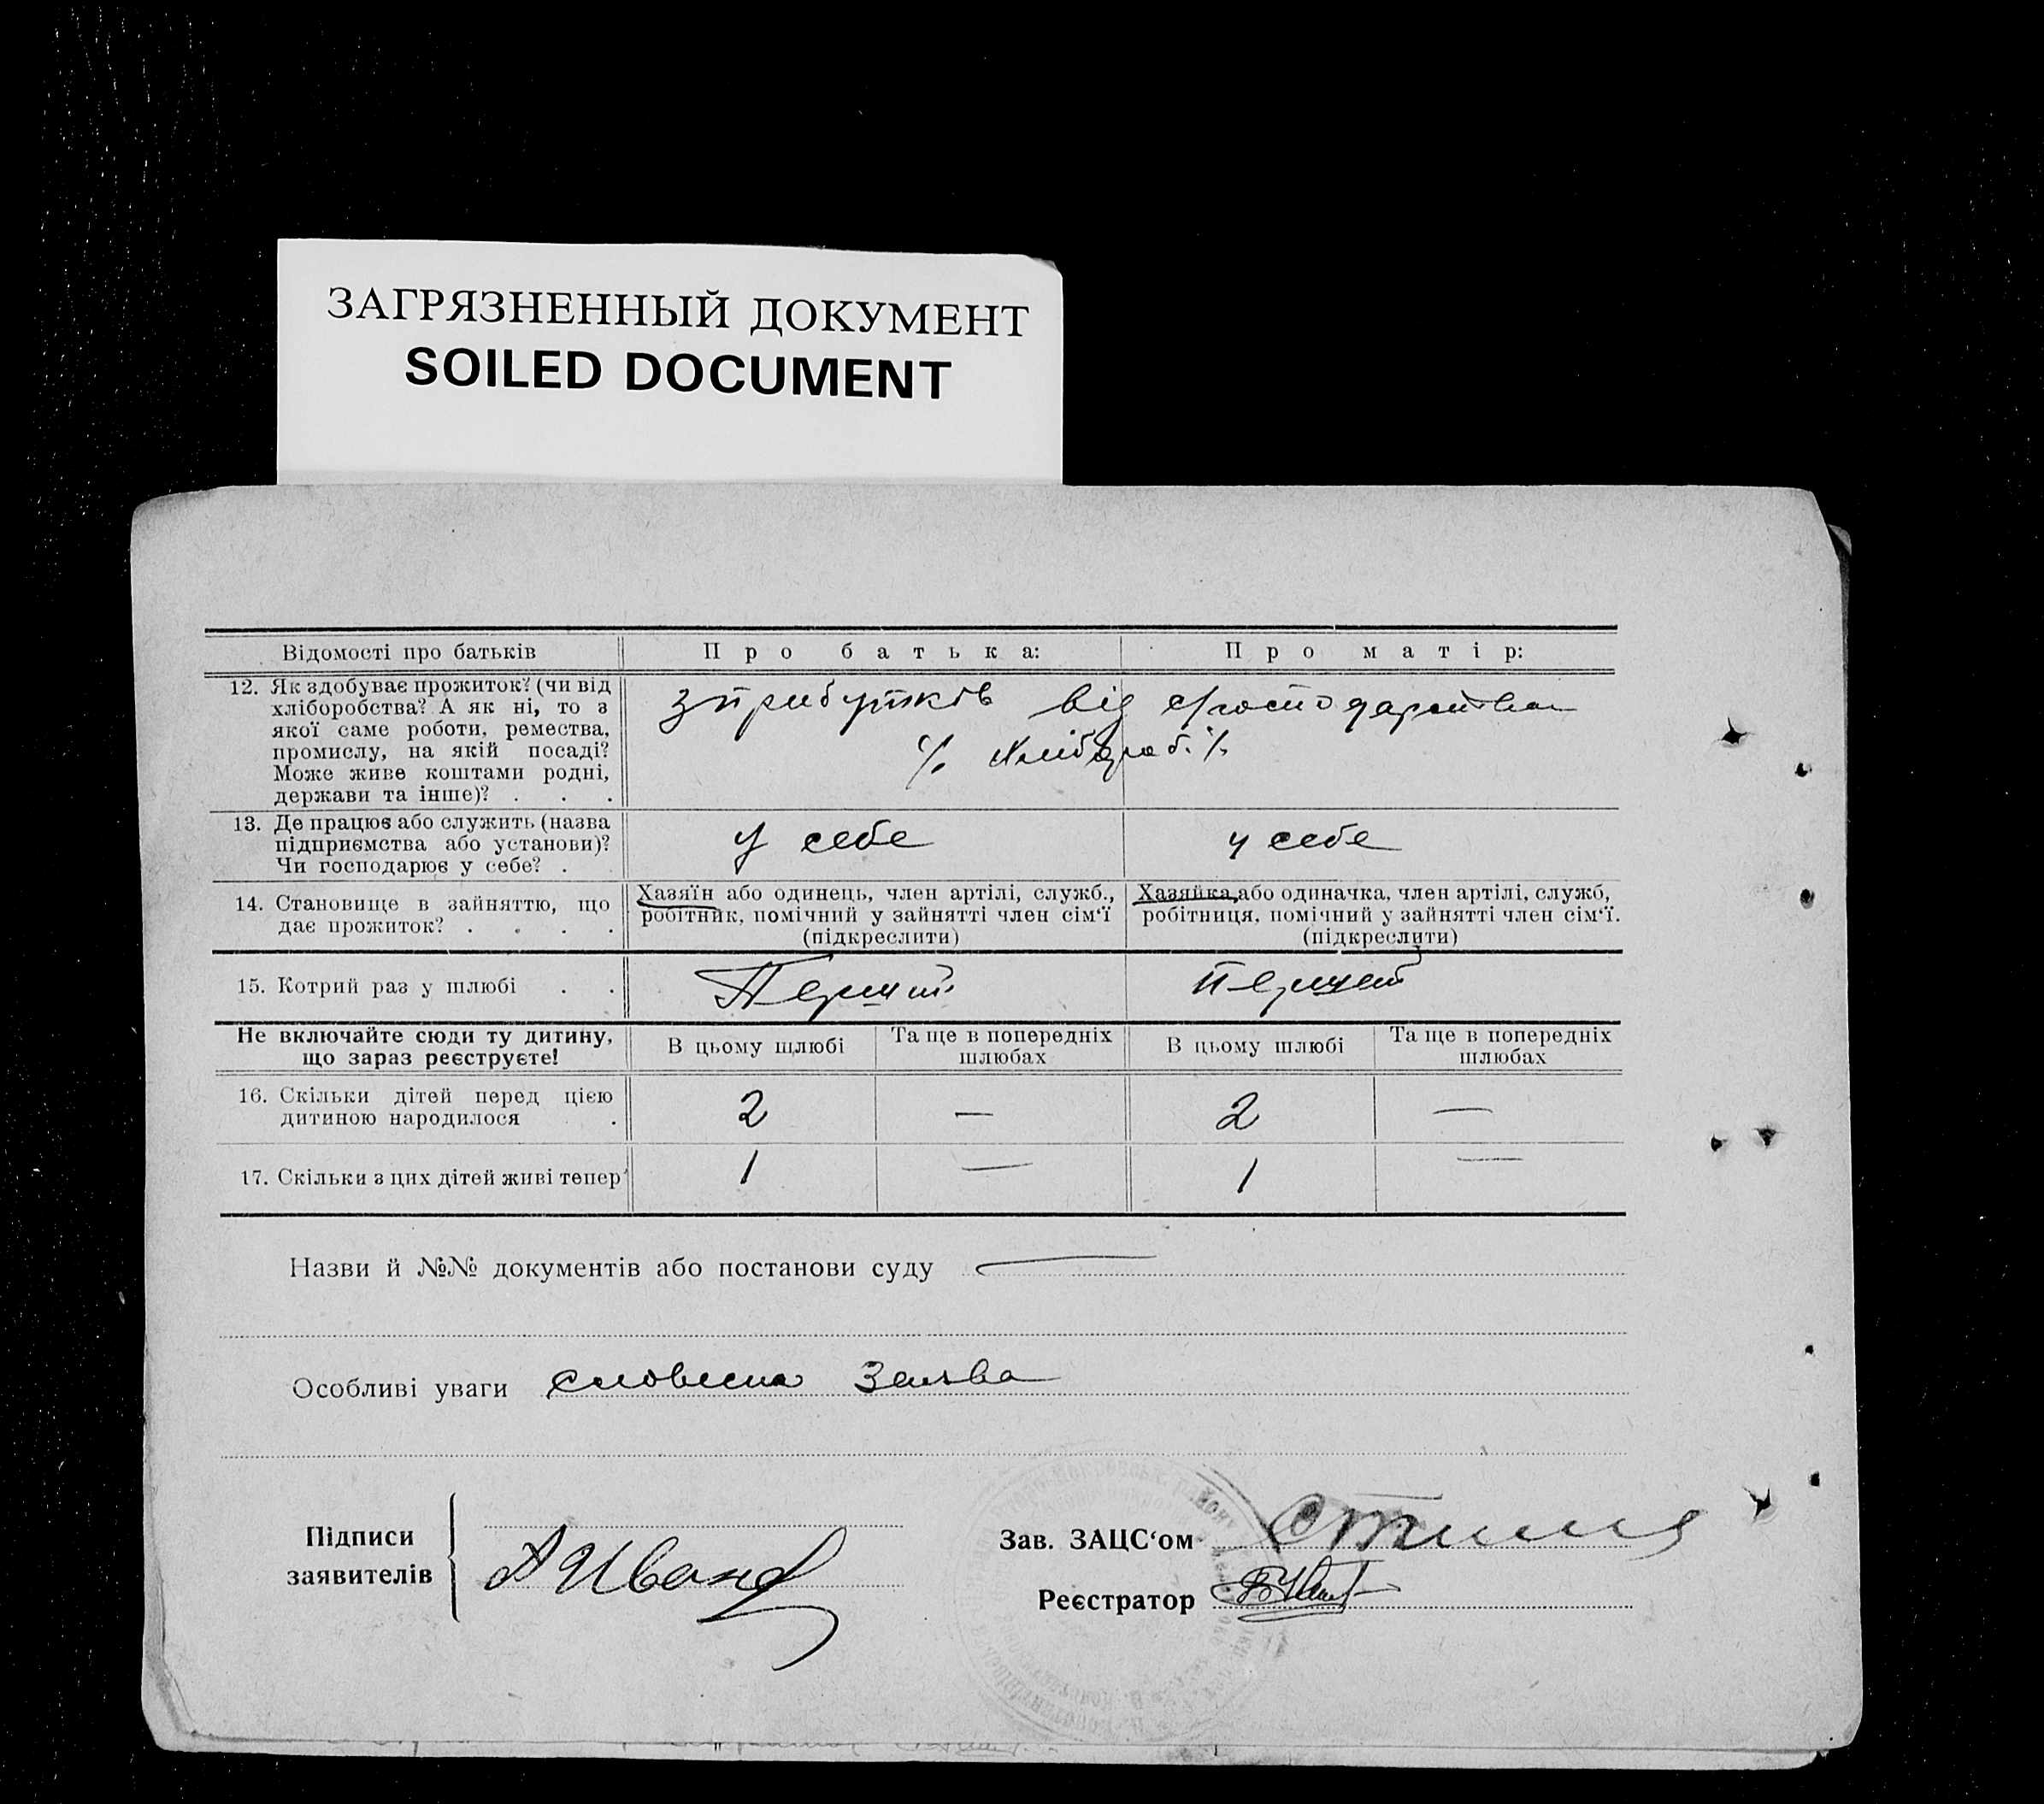 ЗАГРЯЗНЕННЫЙ ДОКУМЕНТ
SOILED DOCUMENT
Відомості про батьків
Про батька:
Про матір:
12. Як здобуває прожиток? (чи від
хліборобства? А як ні, то з
якої саме роботи, ремества,
промислу, на якій посаді?
Може живе коштами родні,
держави та інше)? . . .
з прибутків від господарства
% хлібороб. %
13. Де працює або служить (назва
підприємства або установи)?
Чи господарює у себе? .
у себе
у себе
14. Становище в зайняттю, що
дає прожиток? . . . .
Хазяїн або одинець, член артілі, служб.,
робітник, помічний у зайнятті член сім'ї
(підкреслити)
Хазяйка або одиначка, член артілі, служб,
робітниця, помічний у зайнятті член сім'ї.
(підкреслити)
15. Котрий раз у шлюбі . .
Перший
перший
Не включайте сюди ту дитину,
що зараз реєструєте!
В цьому шлюбі
Та ще в попередніх
шлюбах
В цьому шлюбі
Та ще в попередніх
шлюбах
16. Скільки дітей перед цією
дитиною народилося .
2
—
2
—
17. Скільки з цих дітей живі тепер
1
—
1
—
Назви й №№ документів або постанови суду —
Особливі уваги словесна заява
Підписи
заявителів
Зав. ЗАЦС'ом
Реєстратор